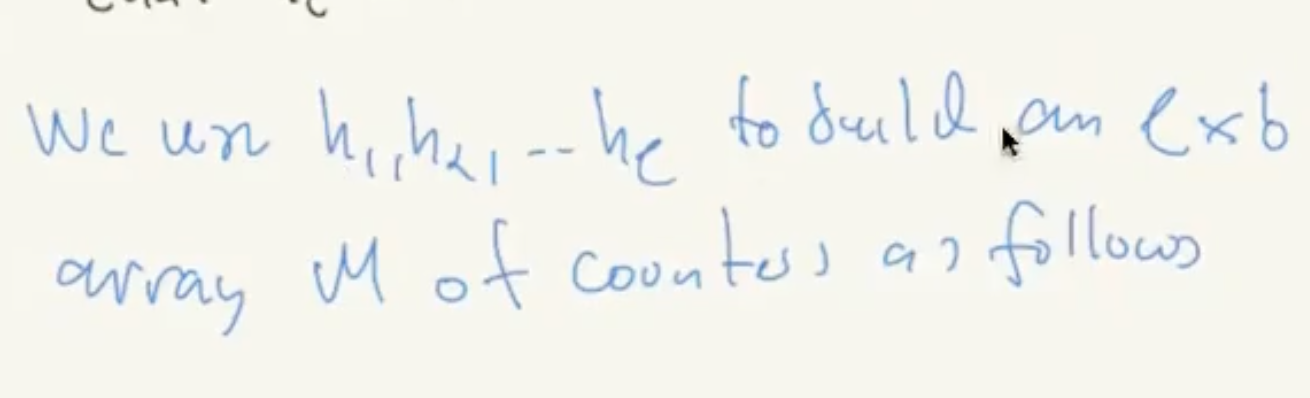 We use h₁, h₂, -- hℓ to build an ℓ×b
array M of counters as follows